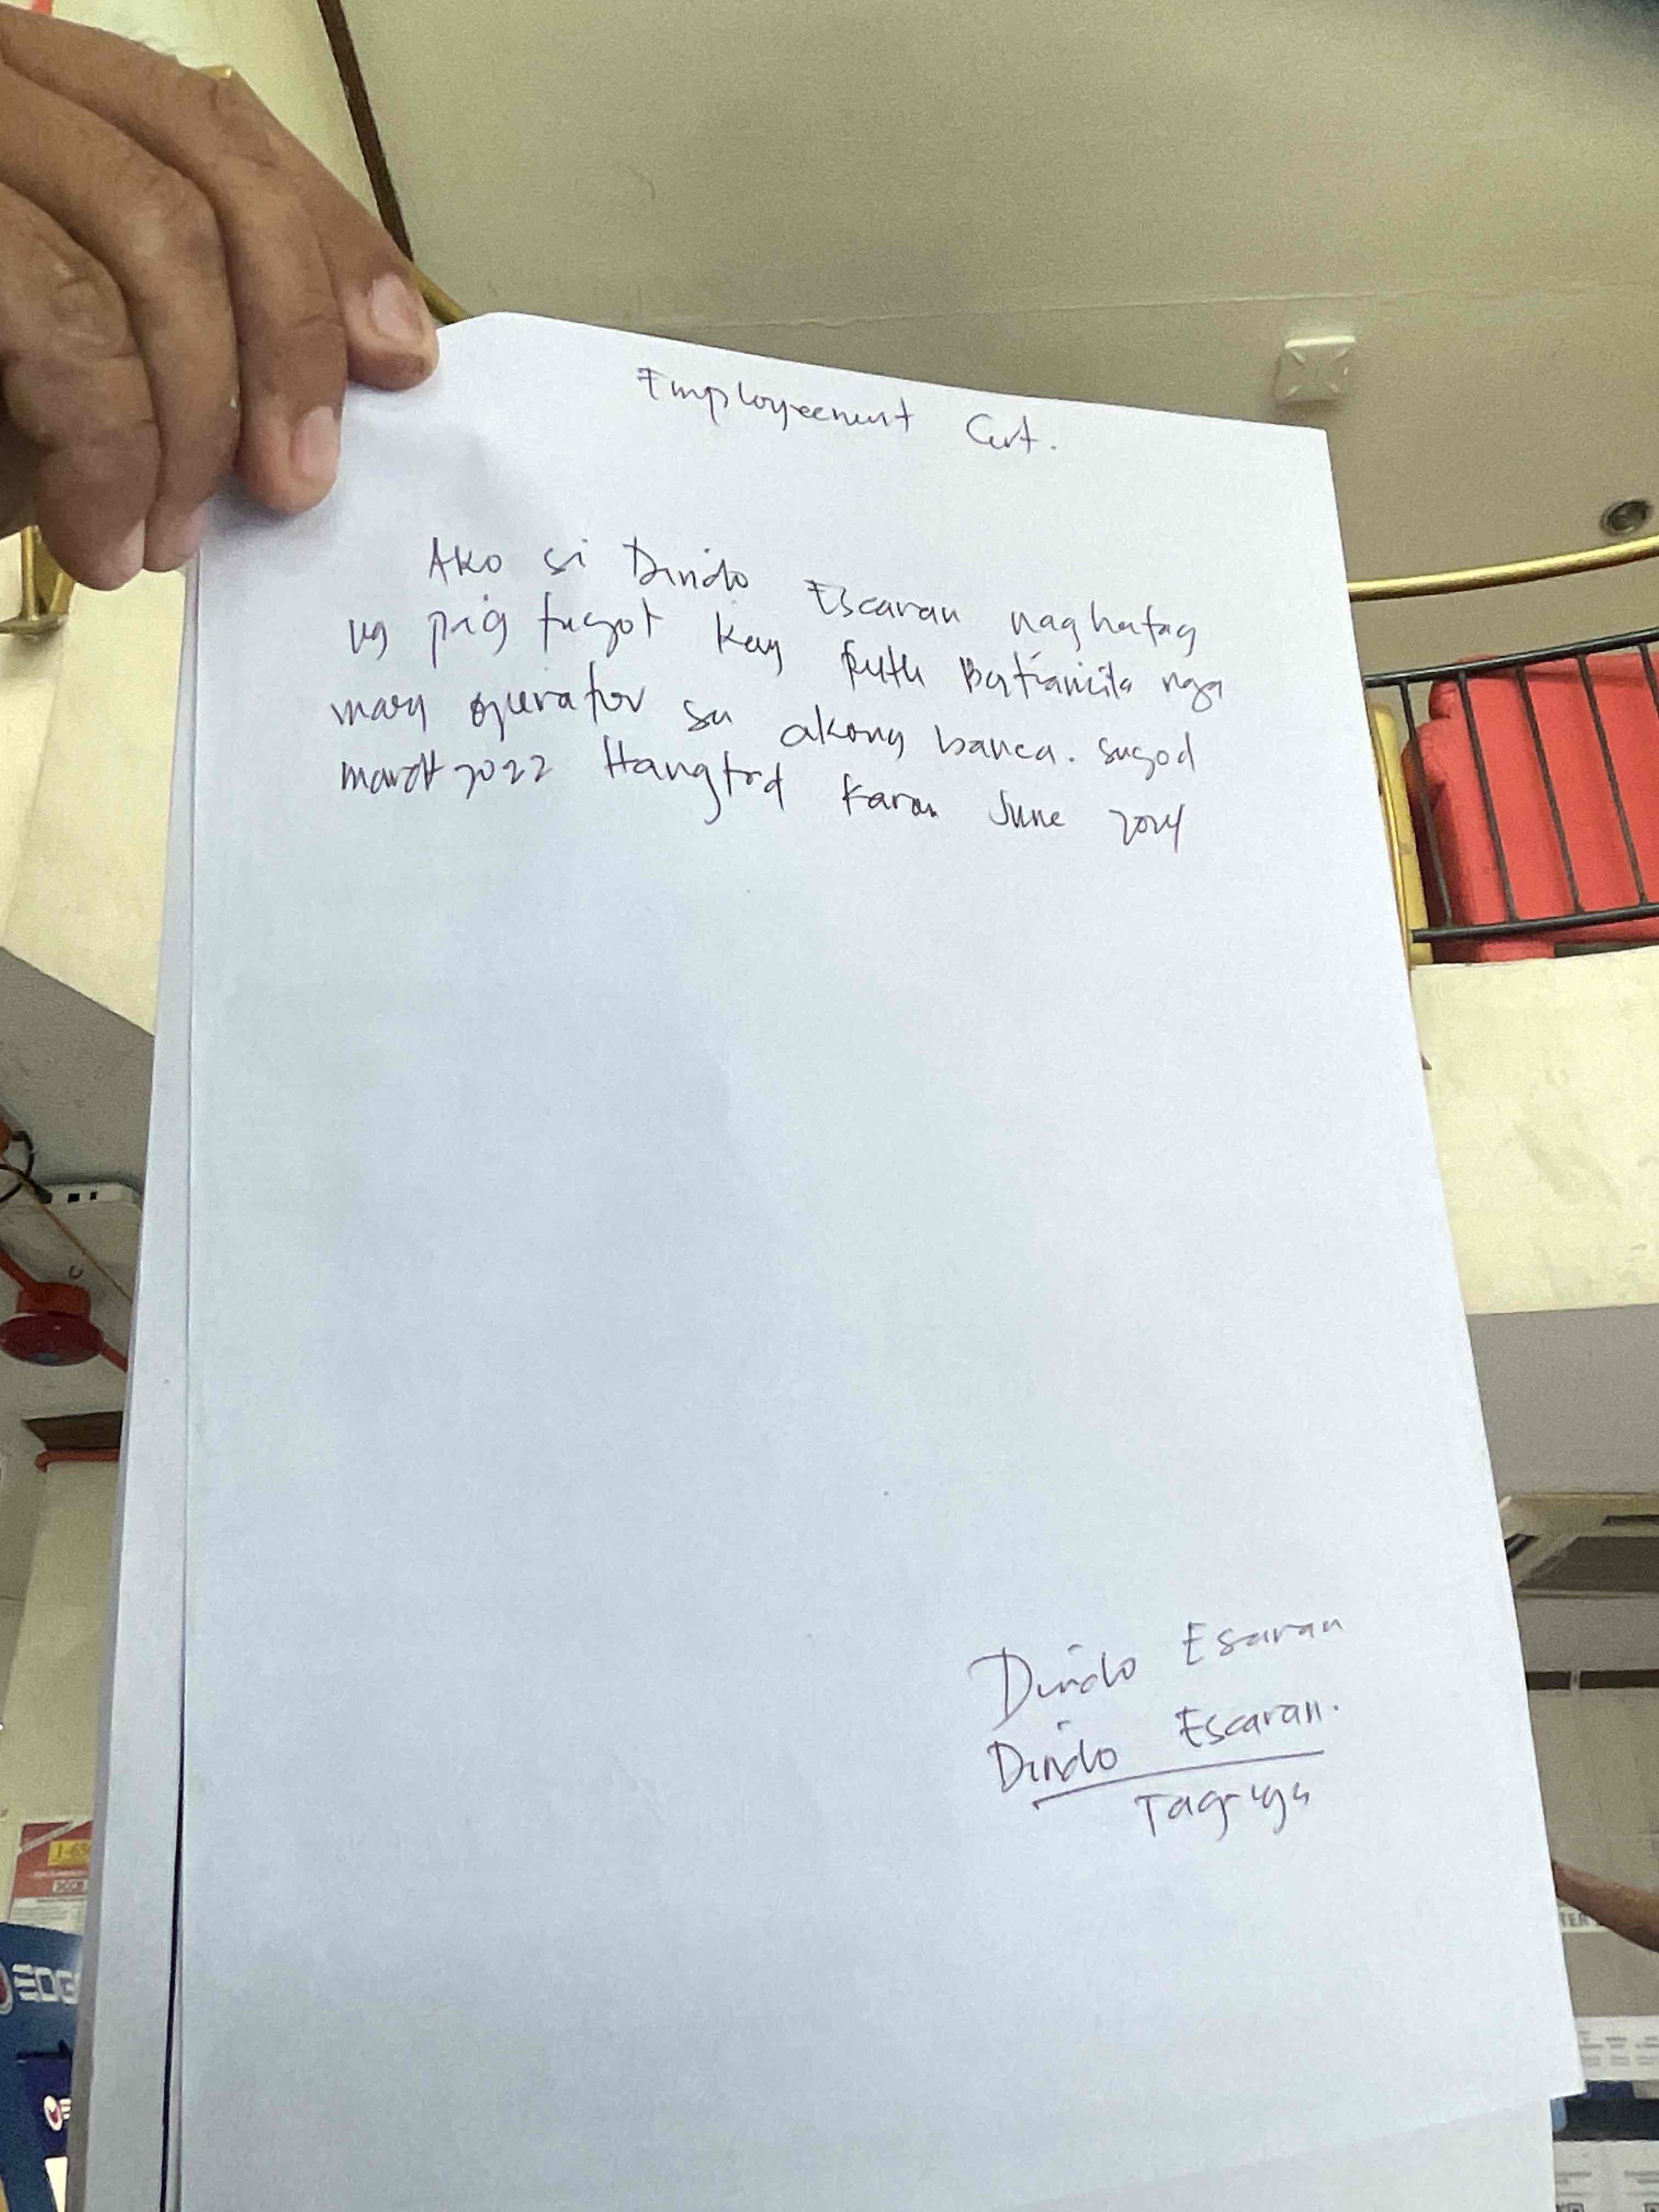 Employeement Cert.
Ako si Dindo Escaran naghatag
ug pag tugot kay Ruth Batiancila nga
mag operator sa akong banca. sugod
march 2022 Hangtod karon June 2024
Dindo Esaran
Dindo Escaran.
Tag-iya